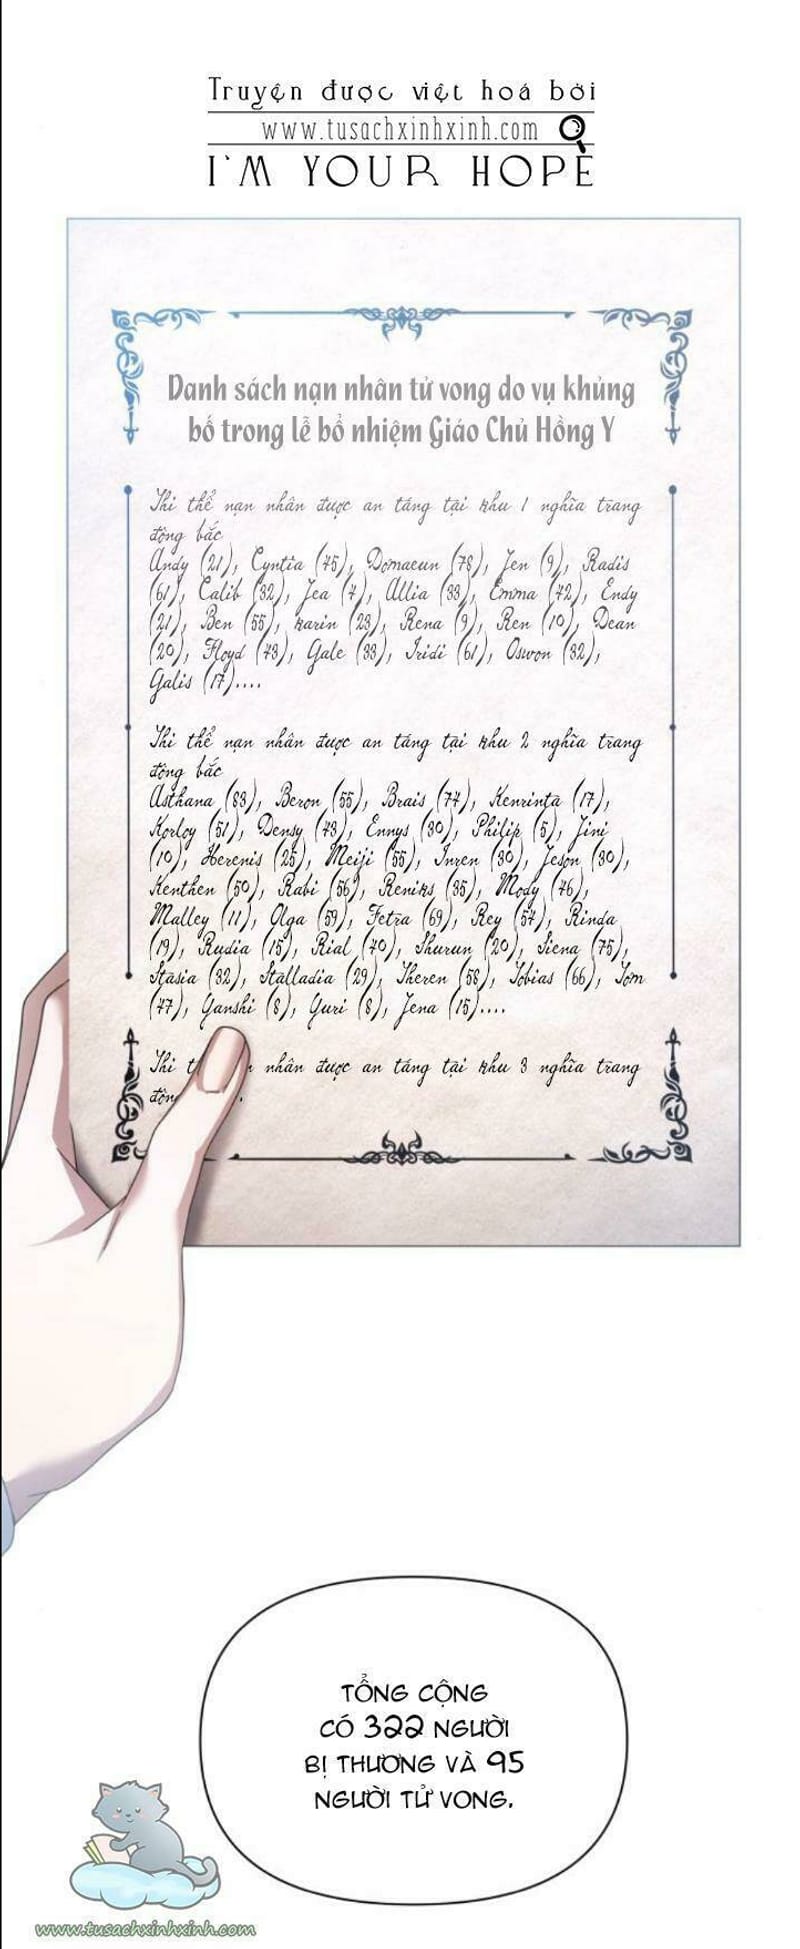 Truyện được việt hoá bởi
www.tusachxinhxinh.com
I'M YOUR HOPE
Danh sách nạn nhân tử vong do vụ khủng
bố trong lễ bổ nhiệm Giáo Chủ Hồng Y
Thi thể nạn nhân được an táng tại khu 1 nghĩa trang
đông bắc
Andy (21), Cyntia (45), Domaeun (78), Jen (9), Radis
(61), Calib (32), Jea (4), Allia (33), Emma (42), Endy
(21), Ben (55), karin (23), Rena (9), Ren (10), Dean
(20), Floyd (43), Gale (33), Iridi (61), Oswon (32),
Galis (17)....
Thi thể nạn nhân được an táng tại khu 2 nghĩa trang
đông bắc
Asthana (83), Beron (55), Brais (74), Kenrinta (17),
Korloy (51), Densy (43), Ennys (30), Philip (5), Jini
(10), Herenis (25), Meiji (55), Inren (30), Jeson (30),
Kenthen (50), Rabi (56), Reniks (35), Mody (46),
Malley (11), Olga (59), Fetra (69), Rey (54), Rinda
(19), Rudia (15), Rial (40), Shurun (20), Siena (75),
Stasia (32), Stalladia (29), Theren (58), Tobias (66), Tom
(47), Ganshi (8), Yuri (8), Jena (15)....
Thi nhân được an táng tại khu 3 nghĩa trang
TỔNG CỘNG
CÓ 322 NGƯỜI
BỊ THƯƠNG VÀ 95
NGƯỜI TỬ VONG.
www.tusachxinhxinh.net